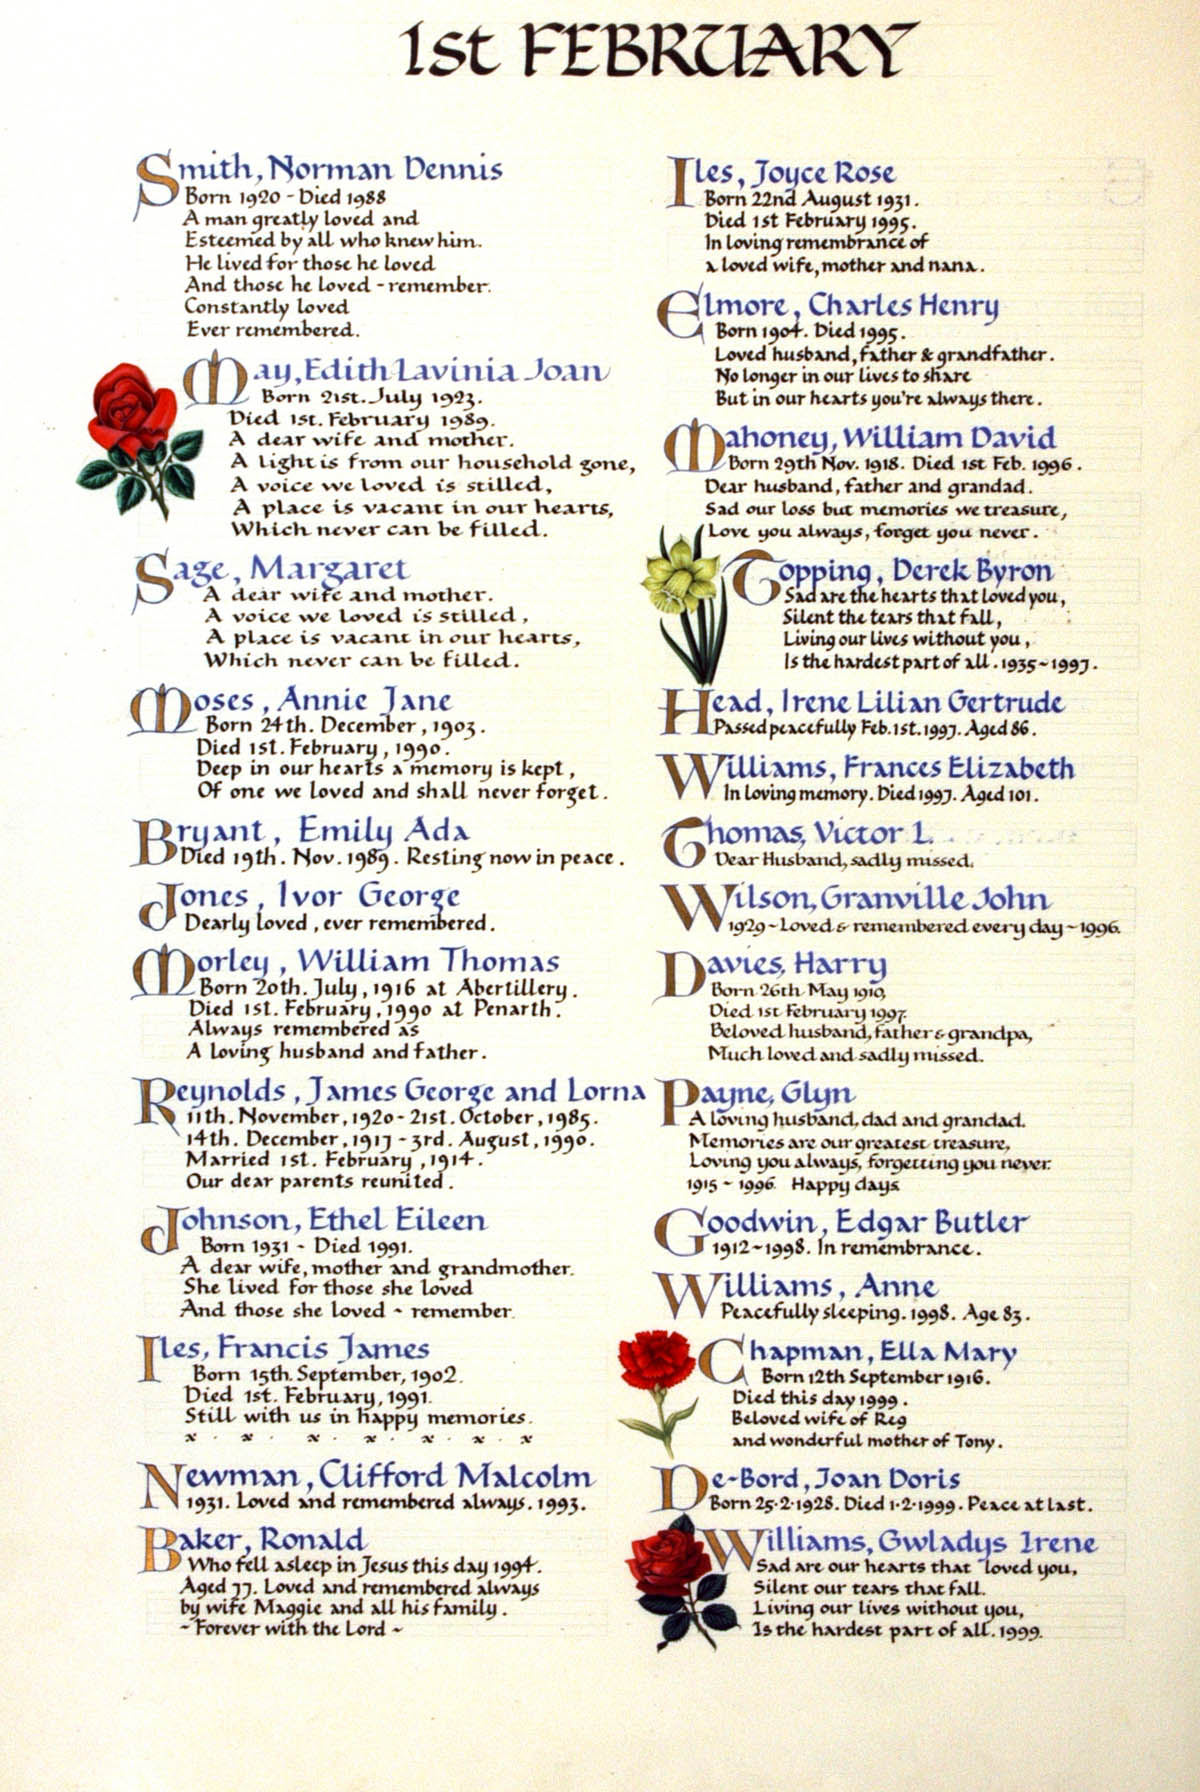 1st FEBRUARY
Smith, Norman Dennis
Born 1920 - Died 1988
A man greatly loved and
Esteemed by all who knew him.
He lived for those he loved
And those he loved - remember.
Constantly loved
Ever remembered.
May, Edith Lavinia Joan
Born 21st. July 1923.
Died 1st. February 1989.
A dear wife and mother.
A light is from our household gone,
A voice we loved is stilled,
A place is vacant in our hearts,
Which never can be filled.
Sage, Margaret
A dear wife and mother.
A voice we loved is stilled,
A place is vacant in our hearts,
Which never can be filled.
Moses, Annie Jane
Born 24th. December, 1903.
Died 1st. February, 1990.
Deep in our hearts a memory is kept,
Of one we loved and shall never forget.
Bryant, Emily Ada
Died 19th. Nov. 1989. Resting now in peace.
Jones, Ivor George
Dearly loved, ever remembered.
Morley, William Thomas
Born 20th. July, 1916 at Abertillery.
Died 1st. February, 1990 at Penarth.
Always remembered as
A loving husband and father.
Reynolds, James George and Lorna
11th. November, 1920 - 21st. October, 1985.
14th. December, 1917 - 3rd. August, 1990.
Married 1st. February, 1914.
Our dear parents reunited.
Johnson, Ethel Eileen
Born 1931 - Died 1991.
A dear wife, mother and grandmother.
She lived for those she loved
And those she loved ~ remember.
Iles, Francis James
Born 15th. September, 1902.
Died 1st. February, 1991.
Still with us in happy memories.
x . x . x . x . x . x . x
Newman, Clifford Malcolm
1931. Loved and remembered always. 1993.
Baker, Ronald
Who fell asleep in Jesus this day 1994.
Aged 77. Loved and remembered always
by wife Maggie and all his family.
~ Forever with the Lord ~
Iles, Joyce Rose
Born 22nd August 1931.
Died 1st February 1995.
In loving remembrance of
a loved wife, mother and nana.
Elmore, Charles Henry
Born 1904. Died 1995.
Loved husband, father & grandfather.
No longer in our lives to share
But in our hearts you're always there.
Mahoney, William David
Born 29th Nov. 1918. Died 1st Feb. 1996.
Dear husband, father and grandad.
Sad our loss but memories we treasure,
Love you always, forget you never.
Topping, Derek Byron
Sad are the hearts that loved you,
Silent the tears that fall,
Living our lives without you,
Is the hardest part of all. 1935~1997.
Head, Irene Lilian Gertrude
Passed peacefully Feb. 1st. 1997. Aged 86.
Williams, Frances Elizabeth
In loving memory. Died 1997. Aged 101.
Thomas, Victor L.
Dear Husband, sadly missed.
Wilson, Granville John
1929 ~ Loved & remembered every day ~ 1996.
Davies, Harry
Born 26th May 1910,
Died 1st February 1997.
Beloved husband, father & grandpa,
Much loved and sadly missed.
Payne, Glyn
A loving husband, dad and grandad.
Memories are our greatest treasure,
Loving you always, forgetting you never.
1915 ~ 1996. Happy days
Goodwin, Edgar Butler
1912~1998. In remembrance.
Williams, Anne
Peacefully sleeping. 1998. Age 83.
Chapman, Ella Mary
Born 12th September 1916.
Died this day 1999.
Beloved wife of Reg
and wonderful mother of Tony.
De-Bord, Joan Doris
Born 25·2·1928. Died 1·2·1999. Peace at last.
Williams, Gwladys Irene
Sad are our hearts that loved you,
Silent our tears that fall.
Living our lives without you,
Is the hardest part of all. 1999.